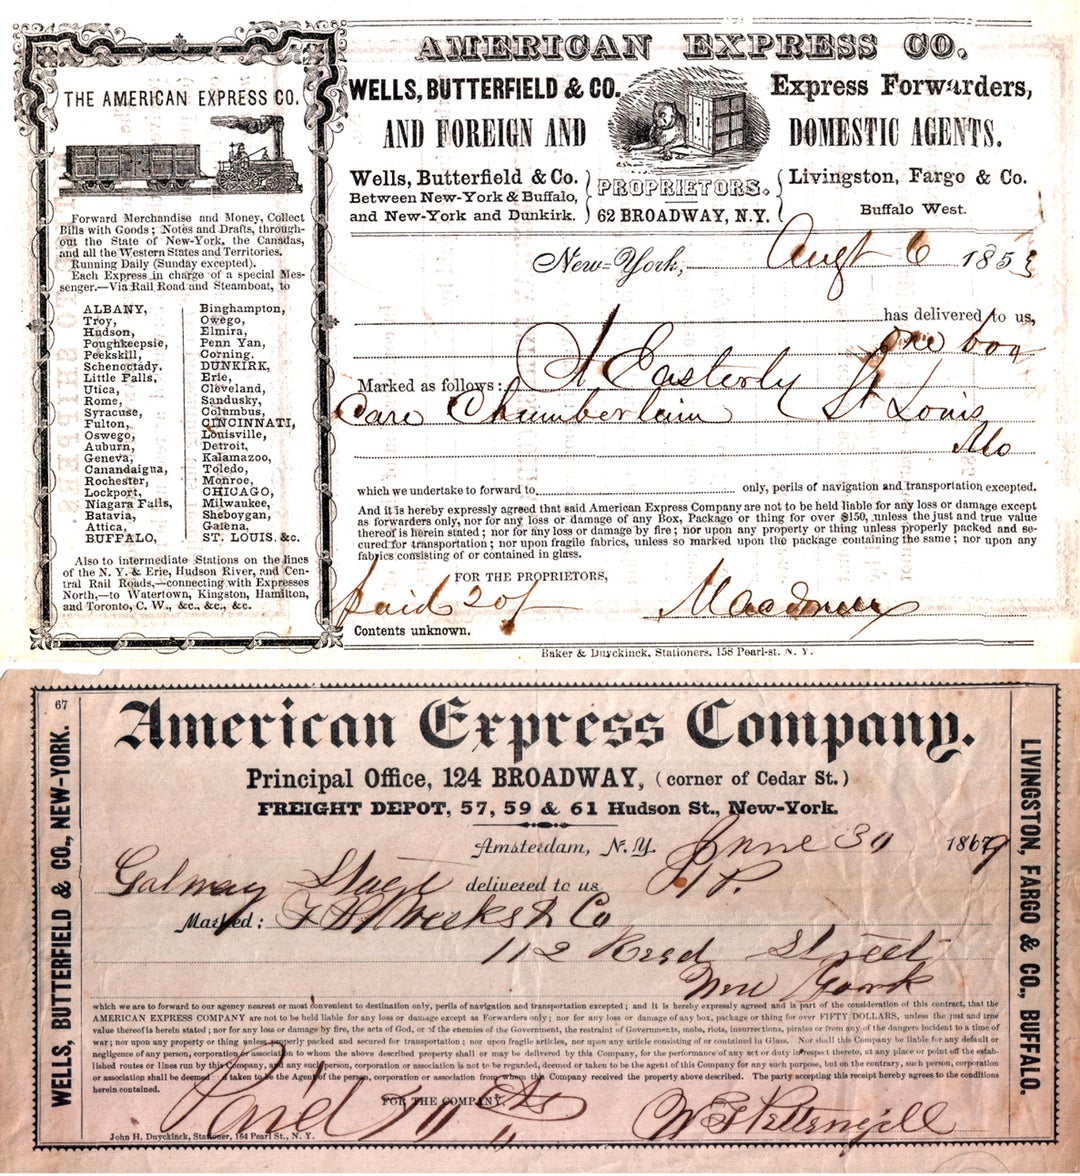 THE AMERICAN EXPRESS CO.
Forward Merchandise and Money, Collect
Bills with Goods; Notes and Drafts, through-
out the State of New-York, the Canadas,
and all the Western States and Territories.
Running Daily (Sunday excepted).
Each Express in charge of a special Mes-
senger.—Via Rail Road and Steamboat, to
ALBANY,
Troy,
Hudson,
Poughkeepsie,
Peekskill,
Schenectady,
Little Falls,
Utica,
Rome,
Syracuse,
Fulton,
Oswego,
Auburn,
Geneva,
Canandaigua,
Rochester,
Lockport,
Niagara Falls,
Batavia,
Attica,
BUFFALO,
Binghampton,
Owego,
Elmira,
Penn Yan,
Corning,
DUNKIRK,
Erie,
Cleveland,
Sandusky,
Columbus,
CINCINNATI,
Louisville,
Detroit,
Kalamazoo,
Toledo,
Monroe,
CHICAGO,
Milwaukee,
Sheboygan,
Galena,
ST. LOUIS. &c.
Also to intermediate Stations on the lines
of the N. Y. & Erie, Hudson River, and Cen-
tral Rail Roads,—connecting with Expresses
North,—to Watertown, Kingston, Hamilton,
and Toronto, C. W., &c., &c., &c.
AMERICAN EXPRESS CO.
WELLS, BUTTERFIELD & CO. Express Forwarders,
AND FOREIGN AND DOMESTIC AGENTS.
Wells, Butterfield & Co.
Between New-York & Buffalo,
and New-York and Dunkirk.
PROPRIETORS.
62 BROADWAY, N.Y.
Livingston, Fargo & Co.
Buffalo West.
New-York, Augt 6 1853
has delivered to us,
one box
Marked as follows: A Easterly
Care Chamberlain St Louis
Mo
which we undertake to forward to only, perils of navigation and transportation excepted.
And it is hereby expressly agreed that said American Express Company are not to be held liable for any loss or damage except
as forwarders only, nor for any loss or damage of any Box, Package or thing for over $150, unless the just and true value
thereof is herein stated; nor for any loss or damage by fire; nor upon any property or thing unless properly packed and se-
cured for transportation; nor upon fragile fabrics, unless so marked upon the package containing the same; nor upon any
fabrics consisting of or contained in glass.
FOR THE PROPRIETORS,
paid 20/
Contents unknown.
Baker & Duyckinck, Stationers, 158 Pearl-st. N. Y.
67
WELLS, BUTTERFIELD & CO., NEW-YORK.
American Express Company.
Principal Office, 124 BROADWAY, (corner of Cedar St.)
FREIGHT DEPOT, 57, 59 & 61 Hudson St., New-York.
Amsterdam, N. Y. June 30 1869
Galway Stage delivered to us 1 P.
Marked: F H Weeks & Co
112 Read Street
New York
which we are to forward to our agency nearest or most convenient to destination only, perils of navigation and transportation excepted; and it is hereby expressly agreed and is part of the consideration of this contract, that the
AMERICAN EXPRESS COMPANY are not to be held liable for any loss or damage except as Forwarders only; nor for any loss or damage of any box, package or thing for over FIFTY DOLLARS, unless the just and true
value thereof is herein stated; nor for any loss or damage by fire, the acts of God, or of the enemies of the Government, the restraint of Governments, mobs, riots, insurrections, pirates or from any of the dangers incident to a time of
war; nor upon any property or thing unless properly packed and secured for transportation; nor upon fragile articles, nor upon any article consisting of or contained in Glass. Nor shall this Company be liable for any default or
negligence of any person, corporation or association to whom the above described property shall or may be delivered by this Company, for the performance of any act or duty in respect thereto, at any place or point off the estab-
lished routes or lines run by this Company, and any such person, corporation or association is not to be regarded, deemed or taken to be the agent of this Company for any such purpose, but on the contrary, such person, corporation
or association shall be deemed taken to be the Agent of the person, corporation or association from whom this Company received the property above described. The party accepting this receipt hereby agrees to the conditions
herein contained.
FOR THE COMPANY,
Paid Cts
W Pettengill
John H. Duyckinck, Stationer, 164 Pearl St., N. Y.
LIVINGSTON, FARGO & CO., BUFFALO.